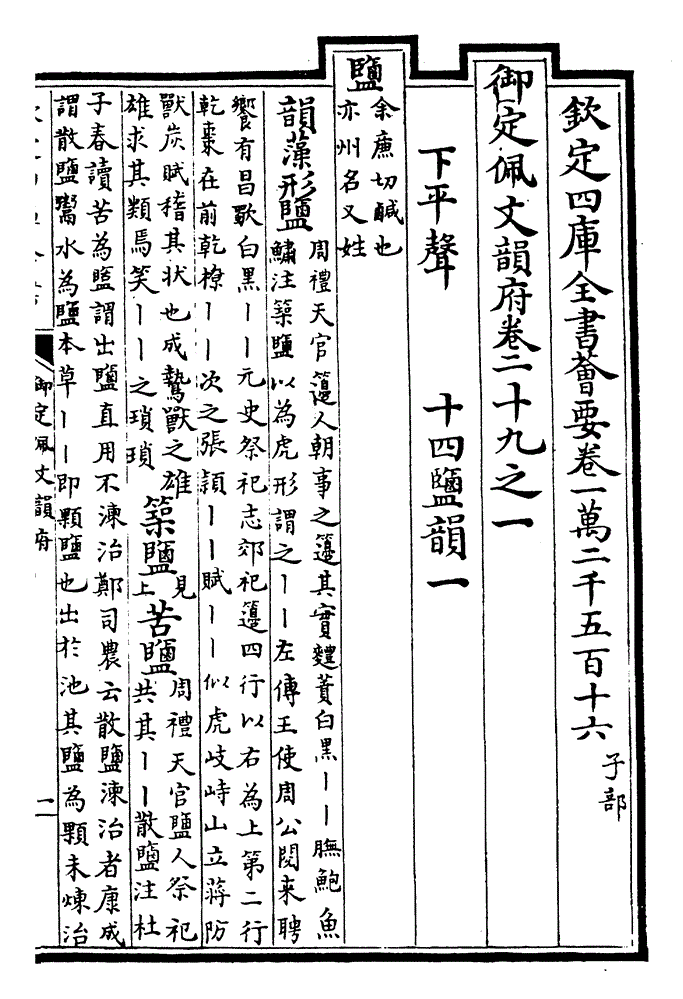 欽定四庫全書薈要卷一萬二千五百十六 子部
御定佩文韻府卷二十九之一
下平聲 十四鹽韻一
鹽 余廉切鹹也
亦州名又姓
韻藻形鹽 周禮天官籩人朝事之籩其實麷蕡白黑丨丨膴鮑魚
鱐注築鹽以為虎形謂之丨丨左傳王使周公閱来聘
饗有昌歜白黑丨丨元史祭祀志郊祀籩四行以右為上第二行
乾棗在前乾橑丨丨次之張頴丨丨賦丨丨似虎岐峙山立蔣防
獸炭賦稽其状也成驇獸之雄
雄求其類焉笑丨丨之瑣瑣 築鹽 見上 苦鹽 周禮天官鹽人祭祀
共其丨丨散鹽注杜
子春讀苦為盬謂出鹽直用不湅治鄭司農云散鹽湅治者康成
謂散鹽鬻水為鹽本草丨丨即顆鹽也出於池其鹽為顆未煉治
御定佩文韻府
一